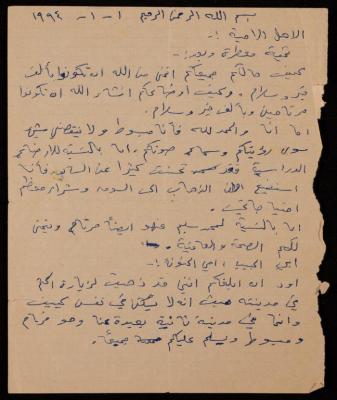 بسم الله الرحمن الرحيم ١ - ١ - ١٩٩٤
الأهل الأحبة !-
تحية معطرة وبعد !-
كيف حالكم جميعكم اتمنى من الله ان تكونوا بألف
خير وسلام . وكيف أوضاعكم انشاء الله ان تكونوا
مرتاحين وبألف خير وسلام .
اما أنا والحمد لله فأنا مبسوط ولا ينقصني شيء
سوى رؤيتكم وسماع صوتكم . اما بالنسبة للأوضاع
الدراسية فقد تحسنت كثيرا عن السابق فأنا
استطيع الآن الذهاب الى السوق وشراء معظم
اما بالنسبة لمحمد سليم فهو أيضا مرتاح ويتمنى
لكم الصحة والعافية .
ابي الحبيب ، امي الحنونة !-
اود ان ابلغكم انني قد ذهبت لزيارة
في مدينته حيث انه لا يسكن في نفس
وانما في مدينة ثانية بعيدة عنا وهو مرتاح
ومبسوط ويسلم عليكم جميعا .